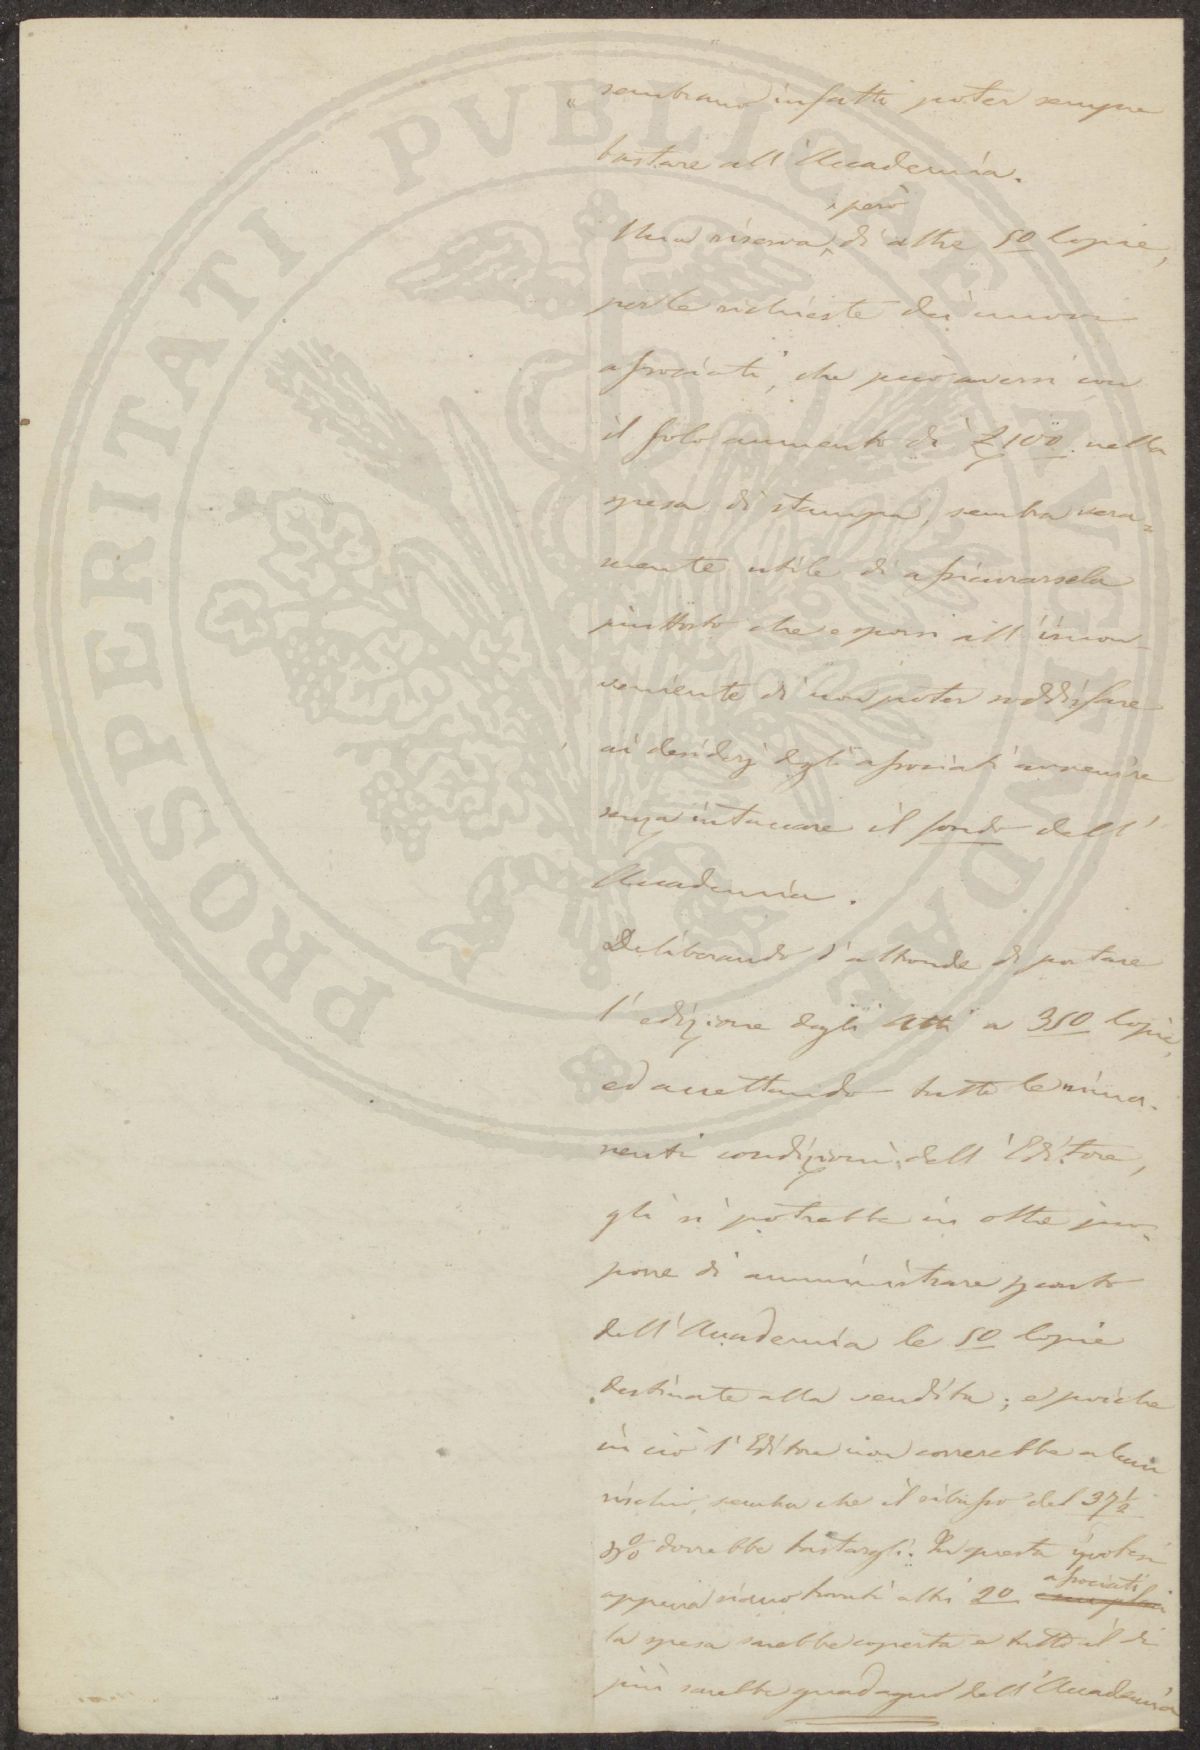 sembrano infatti poter sempre
bastare all'Accademia.
però
Una riserva di altre 50 Copie,
per le richieste dei nuovi
associati, che può aversi con
il solo aumento di £100 nella
spesa di stampa, sembra vera=
mente utile di assicurarsela
piuttosto che esporsi all'incon-
veniente di non poter soddisfare
ai desiderj degli associati avvenire
senza intaccare il fondo dell'
Accademia.
Deliberando d'altronde di portare
l'edizione degli Atti a 350 Copie,
ed accettando tutte le rima-
nenti condizioni dell'Editore,
gli si potrebbe in oltre pro-
porre di amministrare per conto
dell'Accademia le 50 Copie
destinate alla vendita; e poiche
in ciò l'Editore non correrebbe alcun
rischio, sembra che il ribasso del 37½
p% dovrebbe bastargli. In questa ipotesi
associati
appena siano trovati altri 20
la spesa sarebbe coperta e tutto il di
più sarebbe guadagno dell'Accademia
PROSPERITATI PVBLICAE AVGENDAE